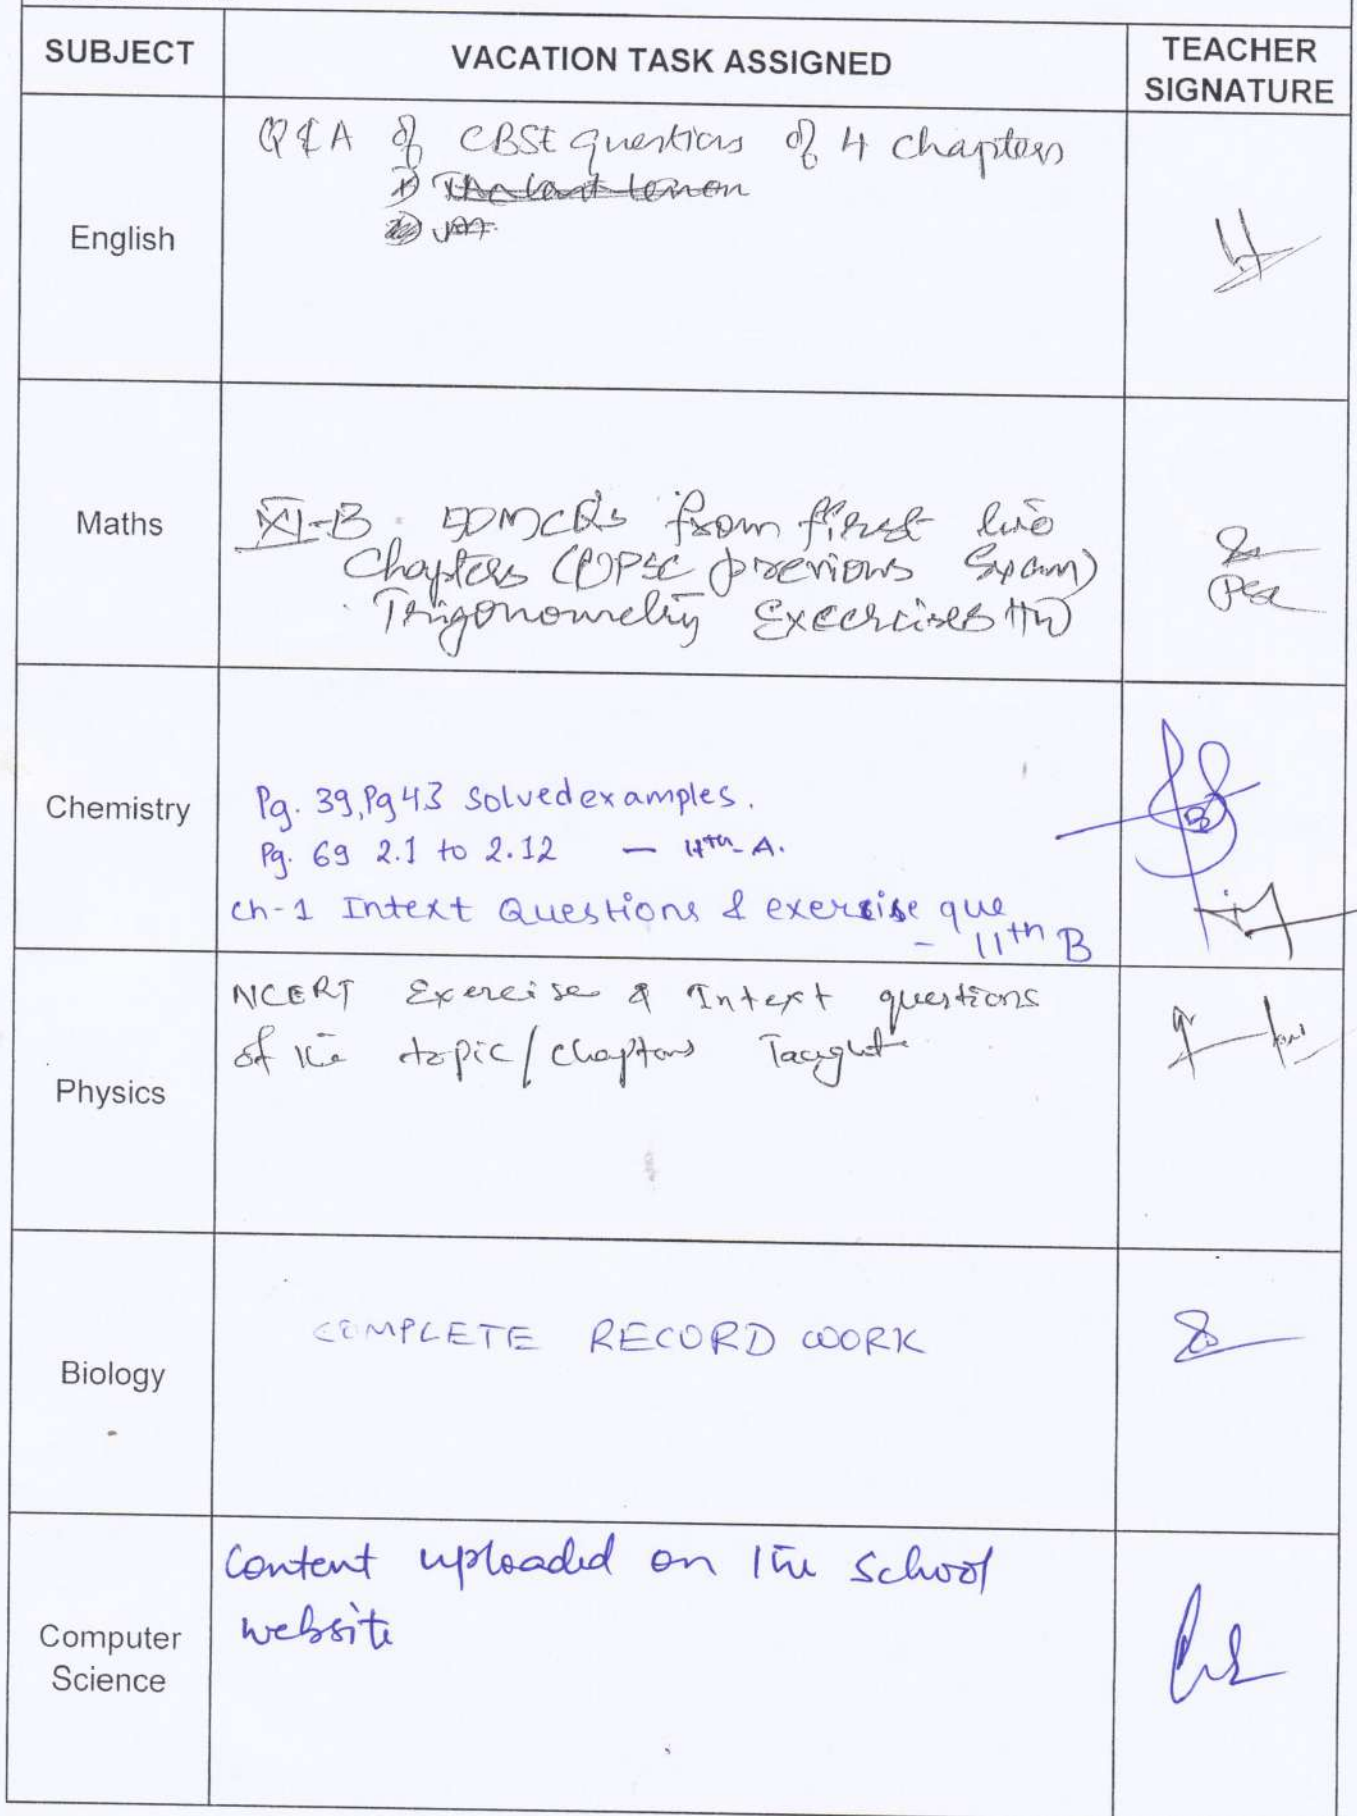 SUBJECT VACATION TASK ASSIGNED TEACHER SIGNATURE
English
Q & A of CBSE questions of 4 chapters
1) The Last Lesson
Maths
XI-B 50 MCQs from first two
Chapters (previous Exam)
Trigonometry Excercises HW
Chemistry
Pg. 39, Pg 43 Solved examples.
Pg. 69 2.1 to 2.12 — 11th A.
ch-1 Intext Questions & exercise que
- 11th B
Physics
NCERT Exercise & Intext questions
of the topic/chapters Taught
Biology
COMPLETE RECORD WORK
Computer Science
Content uploaded on the school
website